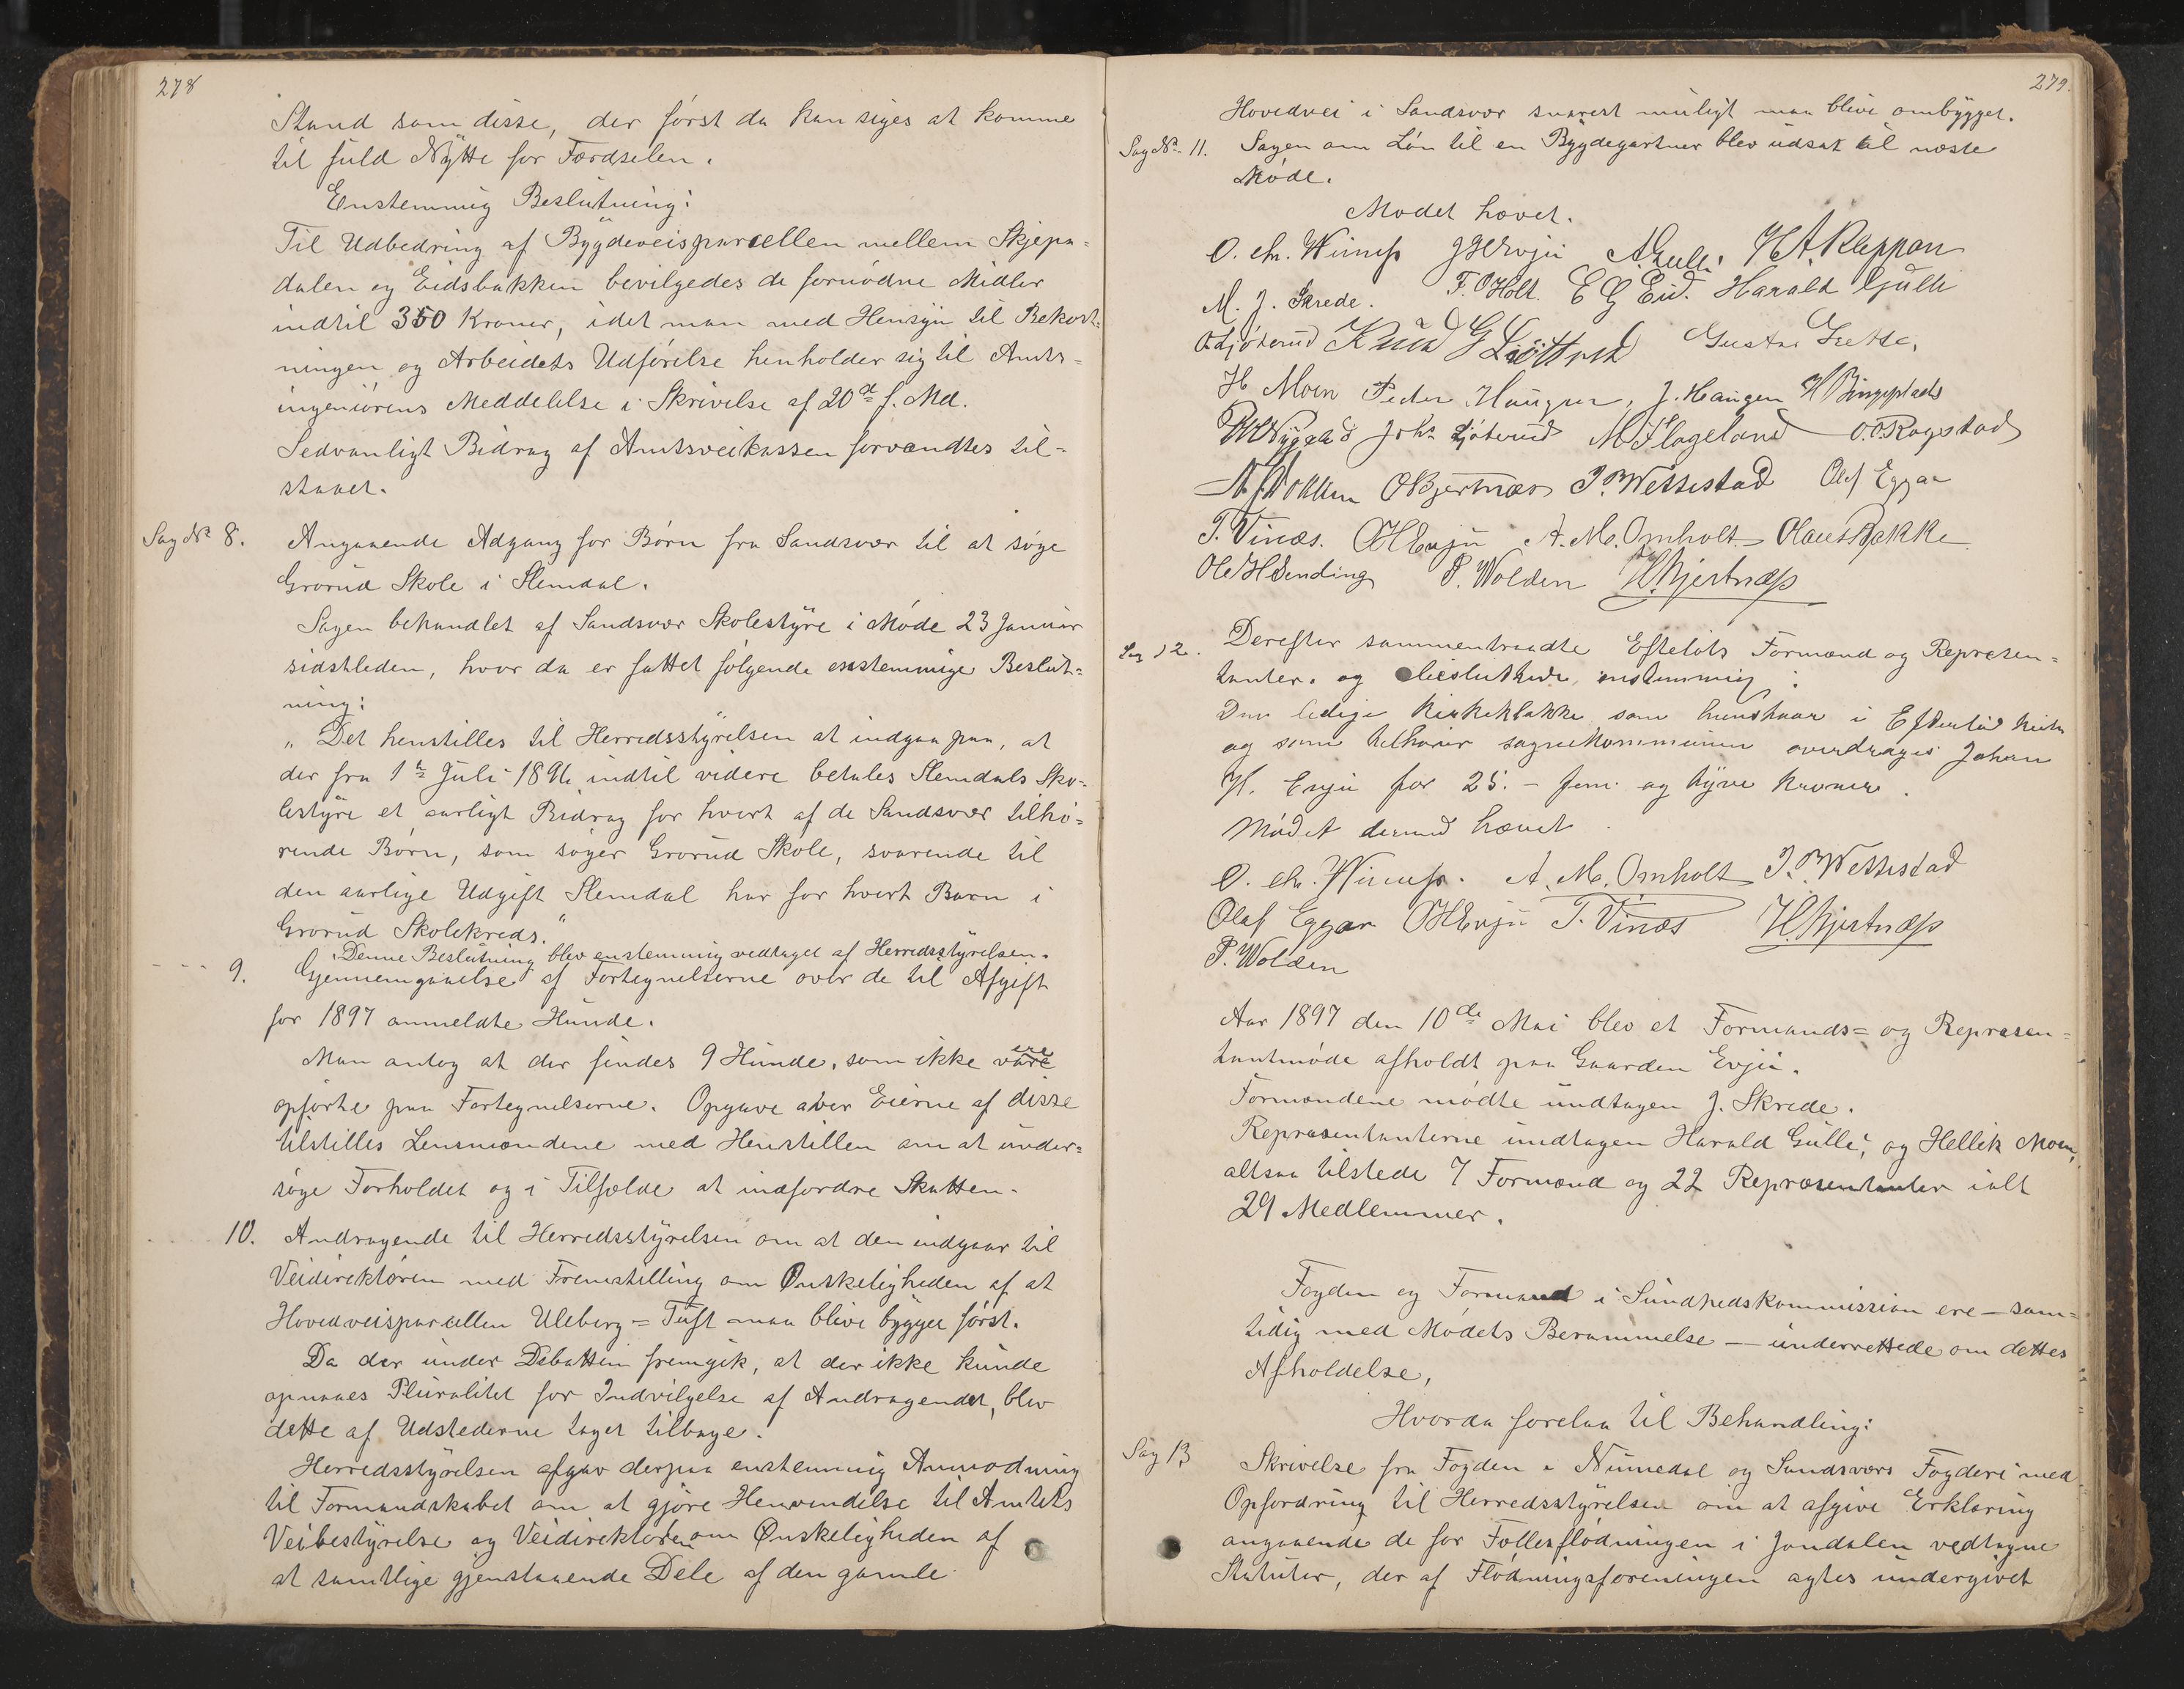 278
Stand som disse, der først da kan siges at komme
til fuld Nytte for Færdselen.
Enstemmig Beslutning:
Til Udbedring af Bygdeveisparcellen mellem Skjepa=
dalen og Eidsbakken bevilgedes de fornødne Midler
indtil 350 Kroner, idet man med Hensyn til Bekost=
ningen og Arbeidets Udførelse henholder sig til Amts=
ingeniørens Meddelelse i Skrivelse af 20de f. Md.
Sedvanligt Bidrag af Amtsveikassen forvændtes til=
staaet.
Sag No 8. Angaaende Adgang for Børn fra Sandsvær til at søge
Grorud Skole i Slemdal.
Sagen behandlet af Sandsvær Skolestyre i Møde 23 Januar
sidstleden, hvor da er fattet følgende enstemmige Beslut=
ning:
„Det henstilles til Herredsstyrelsen at indgaa paa, at
der fra 1te Juli 1896 indtil videre betales Slemdals Sko=
lestyre et aarligt Bidrag for hvert af de Sandsvær tilhø=
rende Børn, som søger Grorud Skole, svarende til
den aarlige Udgift Slemdal har for hvert Barn i
Grorud Skolekreds."
Denne Beslutning blev enstemmig vedtaget af Herredsstyrelsen.
9. Gjennemgaaelse af Fortegnelserne over de til Afgift
for 1897 anmeldte Hunde.
Man antog at der findes 9 Hunde, som ikke vare ere
opførte paa Fortegnelserne. Opgave over Eierne af disse
tilstilles Lensmændene med Henstillen om at under=
søge Forholdet og i Tilfælde at indfordre Skatten.
10. Andragende til Herredsstyrelsen om at den indgaar til
Veidirektøren med Fremstilling om Ønskeligheden af at
Hovedveisparcellen Uleberg=Tuft maa blive bygget først.
Da der under Debatten fremgik, at der ikke kunde
opnaaes Pluralitet for Indvilgelse af Andragendet, blev
dette af Udstederne taget tilbage.
Herredsstyrelsen afgav derpaa enstemmig Anmodning
til Formandskabet om at gjøre Henvendelse til Amtets
Veibestyrelse og Veidirektøren om Ønskeligheden af
at samtlige gjenstaaende Dele af den gamle
279.
Hovedvei i Sandsvær snarest muligt maa blive ombygget.
Sag No 11. Sagen om Løn til en Bygdegartner blev udsat til næste
Møde.
Mødet hævet.
O. Chr. Winess A Gulli H A Kleppan
M. J. Skrede. F. O Holt. E G Eid. Harald Gulli
Knud G
H Moen Peder Haugen, J. Haugen
Johs Ljøterud M Hageland O. O. Rogstad
O Kjernæs I. P. Wettestad Olaf Eggar
T. Vinæs. O H Evju A. M. Omholt Olaus Bakke
Ole H Sending P. Wolden H. Kjertnæss
Sag 12. Derefter sammentraadte Efteløts Formænd og Repræsen=
tanter. og besluttede enstemmig:
Den ledige Kirkeklokke som henstaar i Efteløt Kirke
og som tilhører sognekommunen overdrages Johan
H. Evju for 25. – fem og tyve kroner.
Mødet dermed hævet.
O. Chr. Winess. A. M. Omholt I. P. Wettestad
Olaf Eggar O H Evju T. Vinæs H. Kjertnæss
P. Wolden
Aar 1897 den 10de Mai blev et Formands= og Repræsen=
tantmøde afholdt paa Gaarden Evju.
Formændene mødte undtagen J. Skrede.
Repræsentanterne undtagen Harald Gulli, og Hellik Moen,
altsaa tilstede 7 Formænd og 22 Repræsentanter ialt
29 Medlemmer.
Fogden og Formand i Sundhedskommission ere – sam=
tidig med Mødets Berammelse – underrettede om dettes
Afholdelse,
Hvorda forelaa til Behandling:
Sag 13 Skrivelse fra Fogden i Numedal og Sandsværs Fogderi med
Opfordring til Herredsstyrelsen om at afgive Erklæring
angaaende de for Fællesflødningen i Jondalen vedtagne
Statuter, der af Flødningsforeningen agtes undergivet